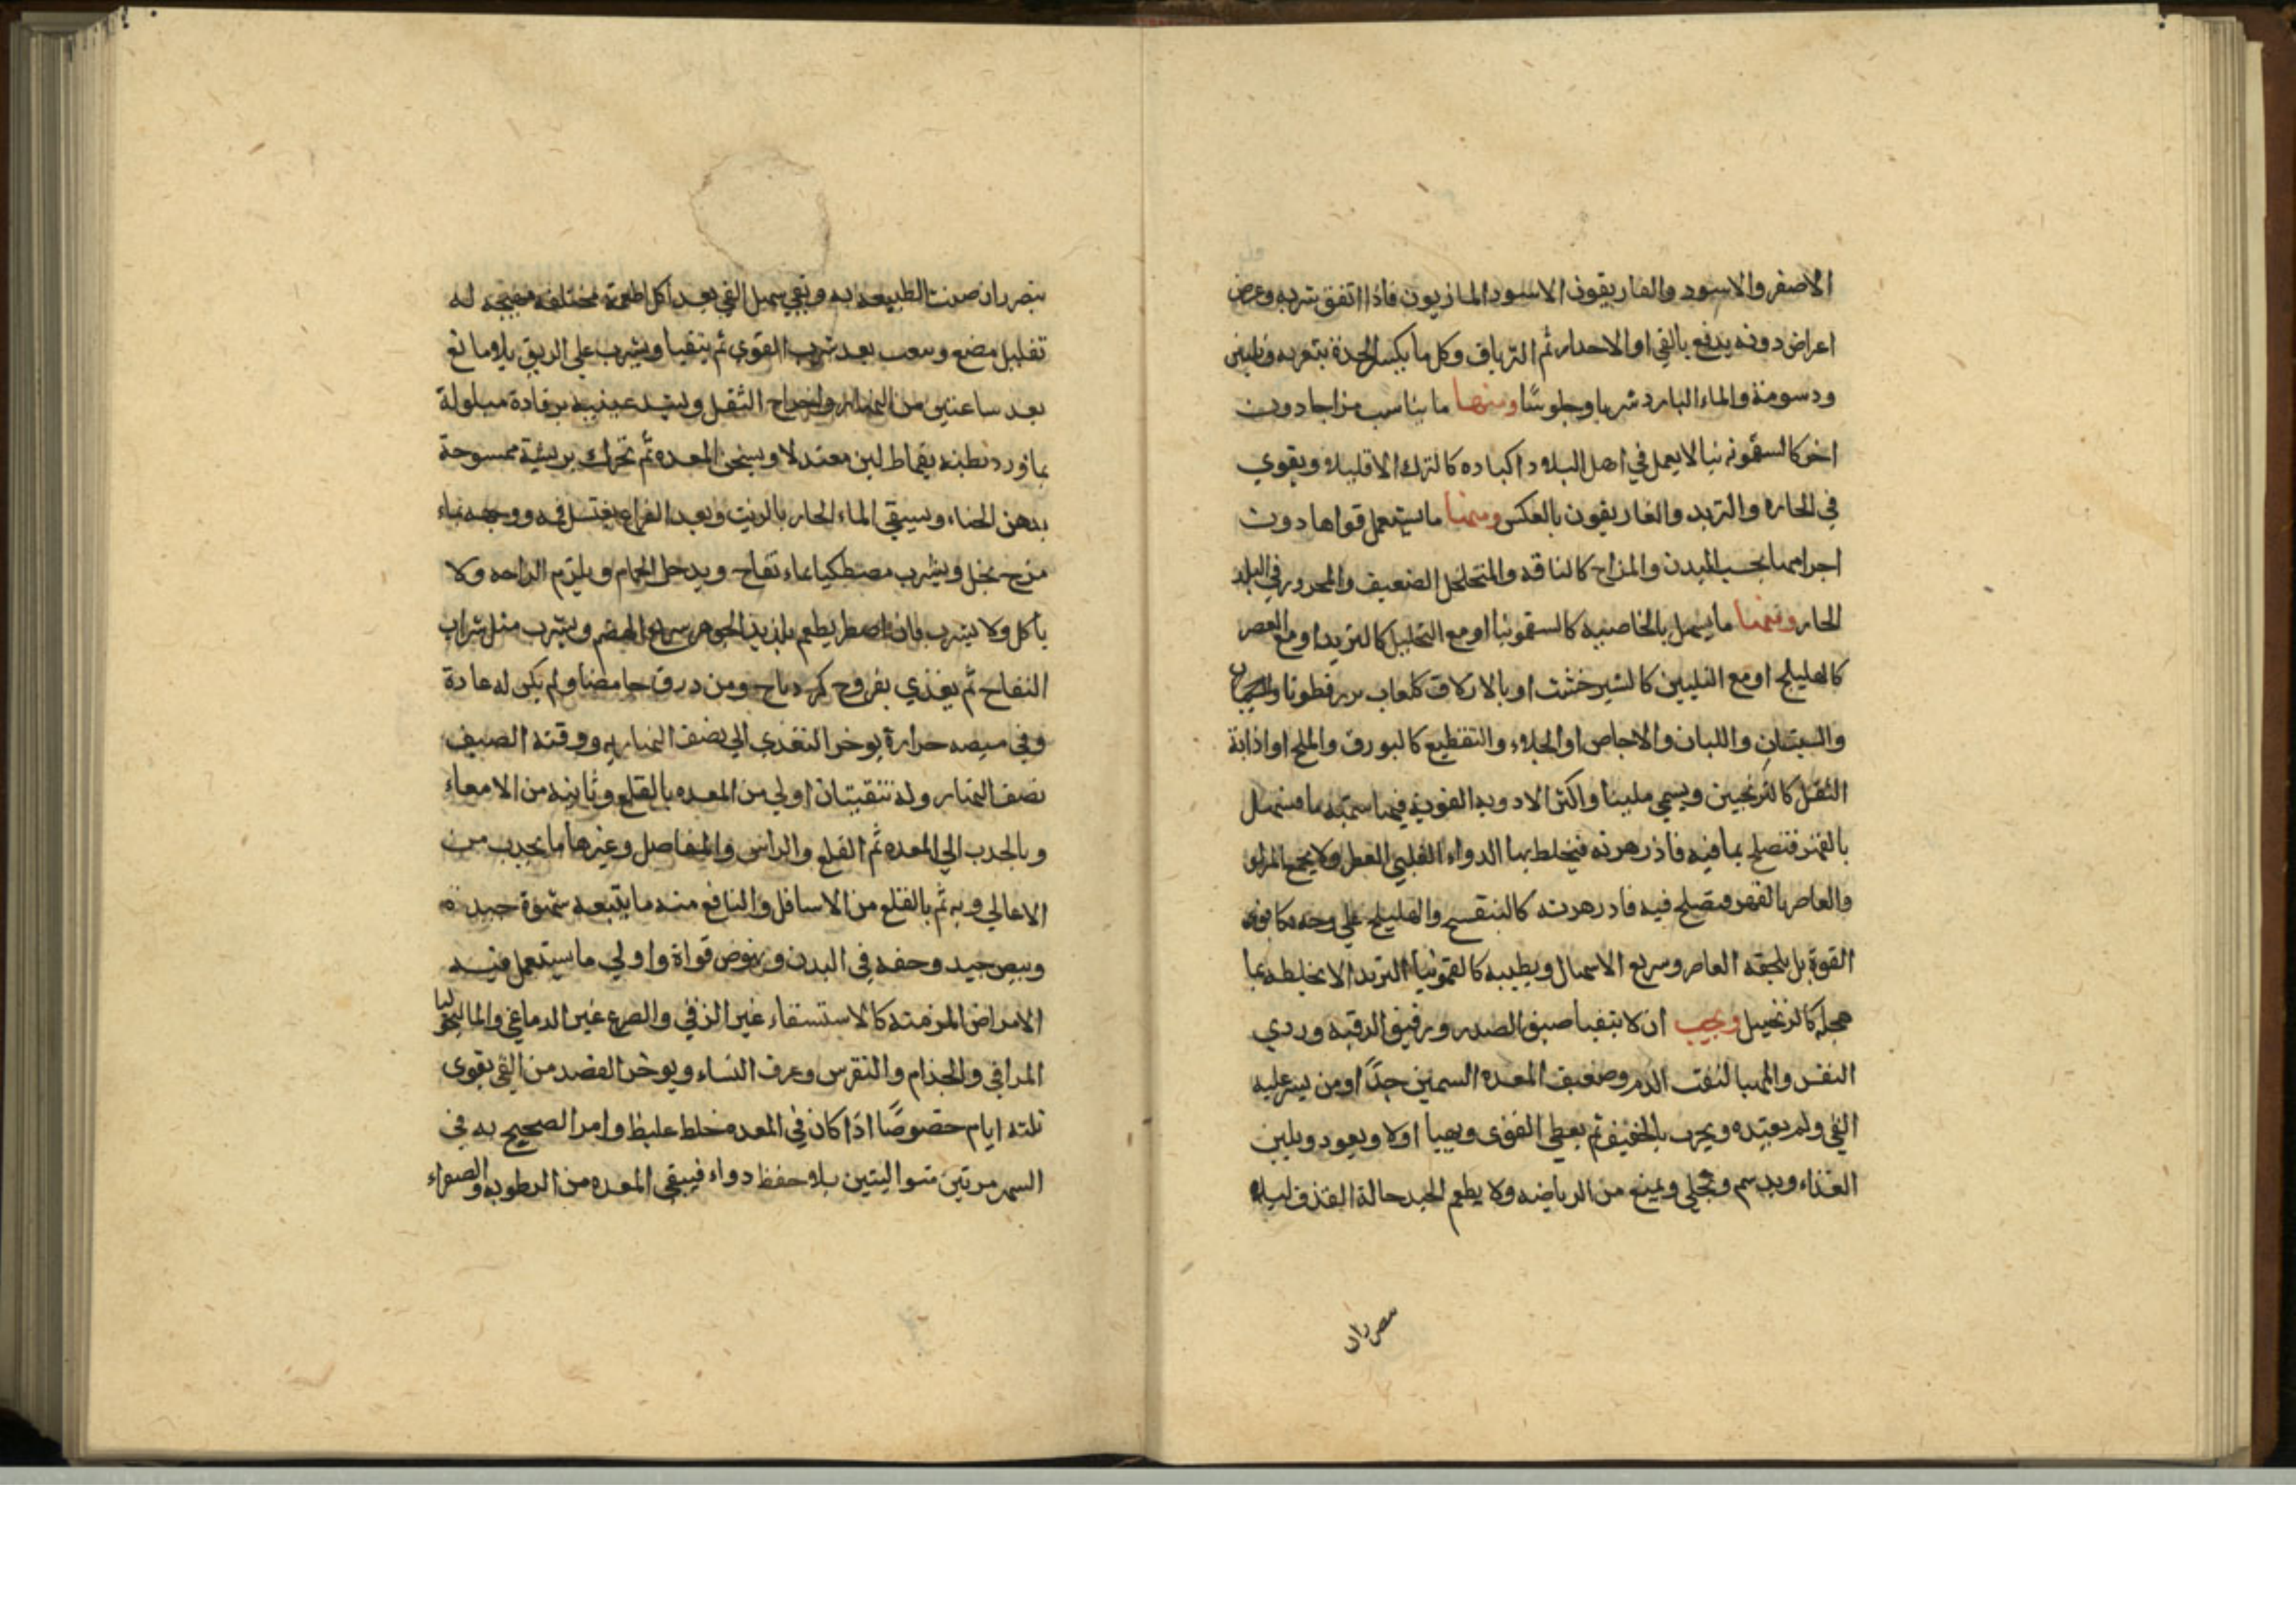 الاصفر والاسود والغاريقون الاسود المازريون فاذا اتفق شربه وعرض
اعراض دونه يدفع بالقي او الاحدار ثم الترياق وكل ما يكسر الحدة بتعريه وتليين
ودسومة والماء البارد شربا وجلوسًا ومنها ما يناسب مزاجا دون
اخر كالسقمونيا لا يعمل في اهل البلاد كالترك الا قليلا ويقوي
في الحاره والتربد والغاريقون بالعكس ومنها ما يستعمل قواها دون
اجرامها بحسب البدن والمزاج كالناقه والمتخلخل الضعيف والمحرور في البلد
الحار ومنها ما يسهل بالخاصيه كالسقمونيا او مع التحليل كالتربد او مع العصر
كالهليلج او مع التليين كالشيرخشت او بالازلاق كلعاب بزرقطونا
والسبستان واللبان والاجاص او الجلاء والتقطيع كالبورق والملح او اذابة
الثقل كالترنجبين ويسمي ملينا واكثر الادويه القويه فيها سميه ما فيسهل
بالقهر فتصلح بما فيه فاذزهرته فيخلط بها الدواء القلبي العطر ولا يجمع المزلق
والعاصر بالقهر فيصلح فيه فادزهرته كالبنفسج والهليلج علي وجه
القوة بل يلحقه العاصر وسريع الاسهال وبطيه كالسقمونيا التربد الا بخلطه بما
يعجله كالزنجبيل ويجب ان لا يتقيا ضيق الصدر ورقيق الرقبه وردي
النفس والمهيا لنفث الدم وضعيف المعده السمين جدًا او من يعسر عليه
القي ولم يعتده ويجرب بالخفيف ثم يعطي القوى ويهيا اولا ويعود ويلين
الغذاء ويدسم وتحلي ويمنع من الرياضه ولا يطعم الجيد حالة القذف ليلا
يتضرر ان ضنت الطبيعه به وبقي يسهل القي بعد اكل اطعمة مختلفه مهيجه له
تقليل مضغ وبعد شرب القوي ثم يتقيا ويشرب علي الريق بلا مانع
بعد ساعتين من النهار واخراج الثقل ويشد عينيه برفادة مبلولة
بماورد وبطنه بقماط لين معتدلا ويسخن المعده ثم تحرك بريشة ممسوحة
بدهن الحناء ويسقي الماء الحار بالزيت وبعد الفراغ يغتسل فمه ووجهه بماء
مزج بخل ويشرب مصطكيا بماء تفاح ويدخل الحمام ويلتزم الراحه ولا
ياكل ولا يشرب فان اضطر يطعم بلذيذ الجوهر سريع الهضم ويشرب مثل شراب
التفاح ثم يغذي بفروج ومن ذرق حامضا ولم يكن له عادة
وفي حرارة يوخر التغذي الي نصف النهار ووقته الصيف
نصف النهار وله تنقيتان اولي من المعده بالقلع وثانيه من الامعاء
وبالجذب الي المعده ثم القلع والراس والمفاصل وغيرها ما يجذب من
الاعالي وبه ثم بالقلع من الاسافل والنافع منه ما يتبعه شهوة جيدة
ونبض جيد وخفه في البدن ونهوض قواة واولي ما يستعمل فيه
الامراض المزمنة كالاستسقاء غير الزقي والصرع غير الدماغي والماليخوليا
المراقي والجذام والنقرس وعرق النساء ويوخر الفصد من القي يقوى
ثلثه ايام خصوصًا اذا كان في المعده خلط غليظ وامر الصحيح به في
الشهر مرتين متواليتين بلا حفظ دواء فينقي المعده من الرطوبه والصفراء